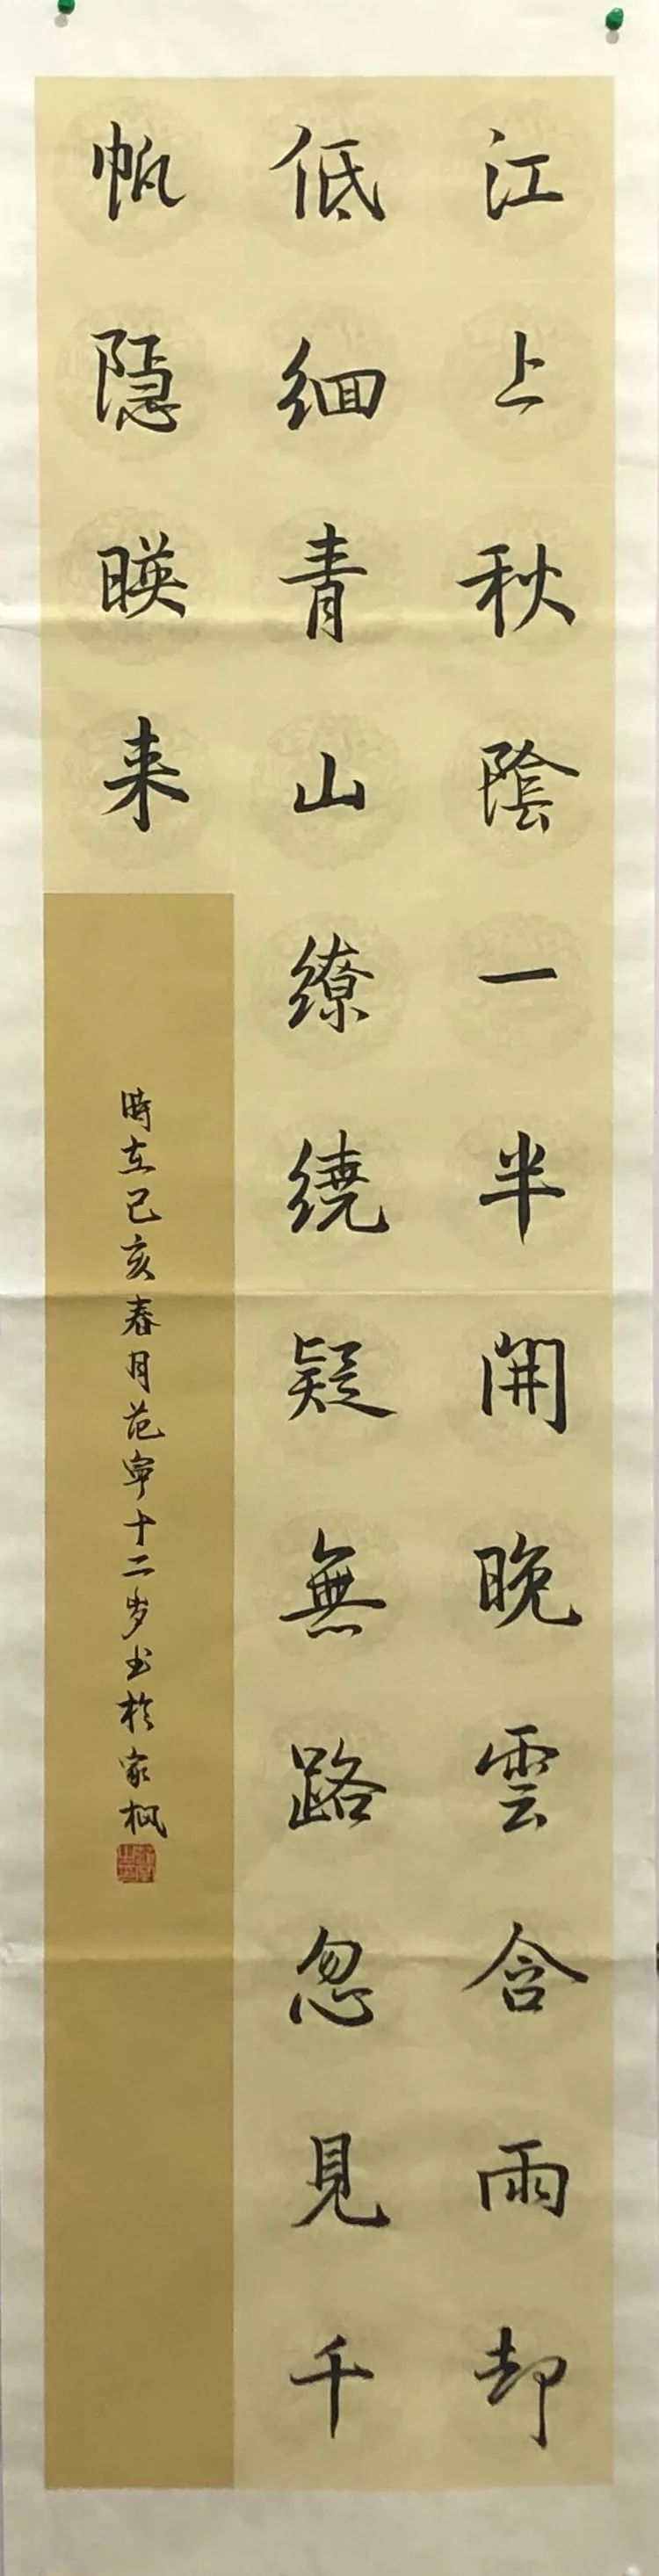 江上秋陰一半開晚雲含雨却
低絗青山繚繞疑無路忽見千
帆隐暎来
時在己亥春月范寧十二岁书於家楓